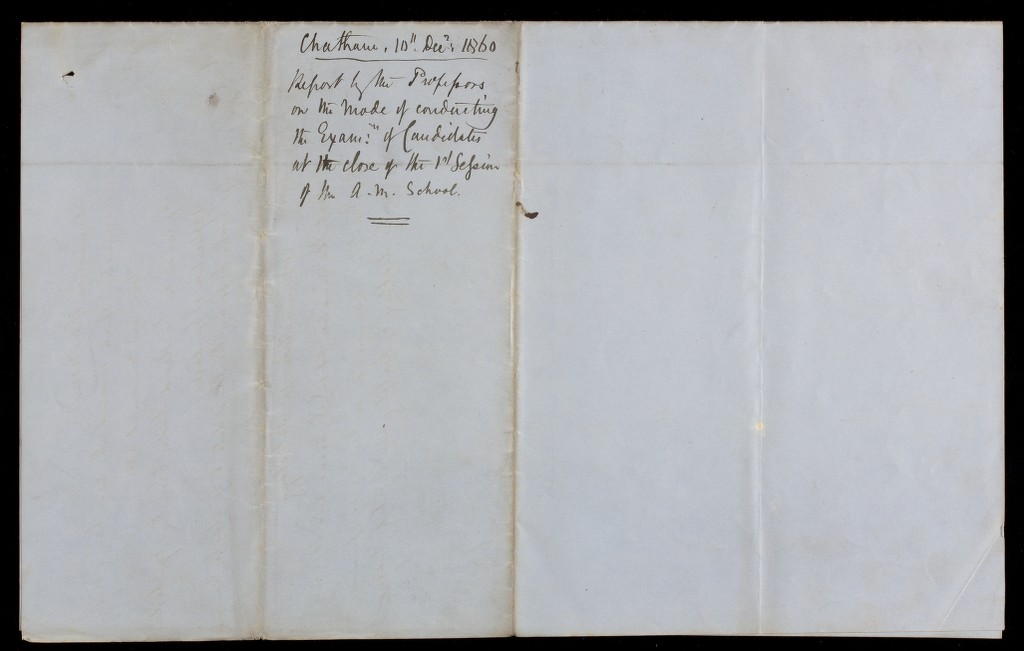 Chatham, 10th Decr. 1860
Report by the Professors
on the Mode of conducting
the Exam:ns of Candidates
at the close of the 1st Session
of the A.M. School.